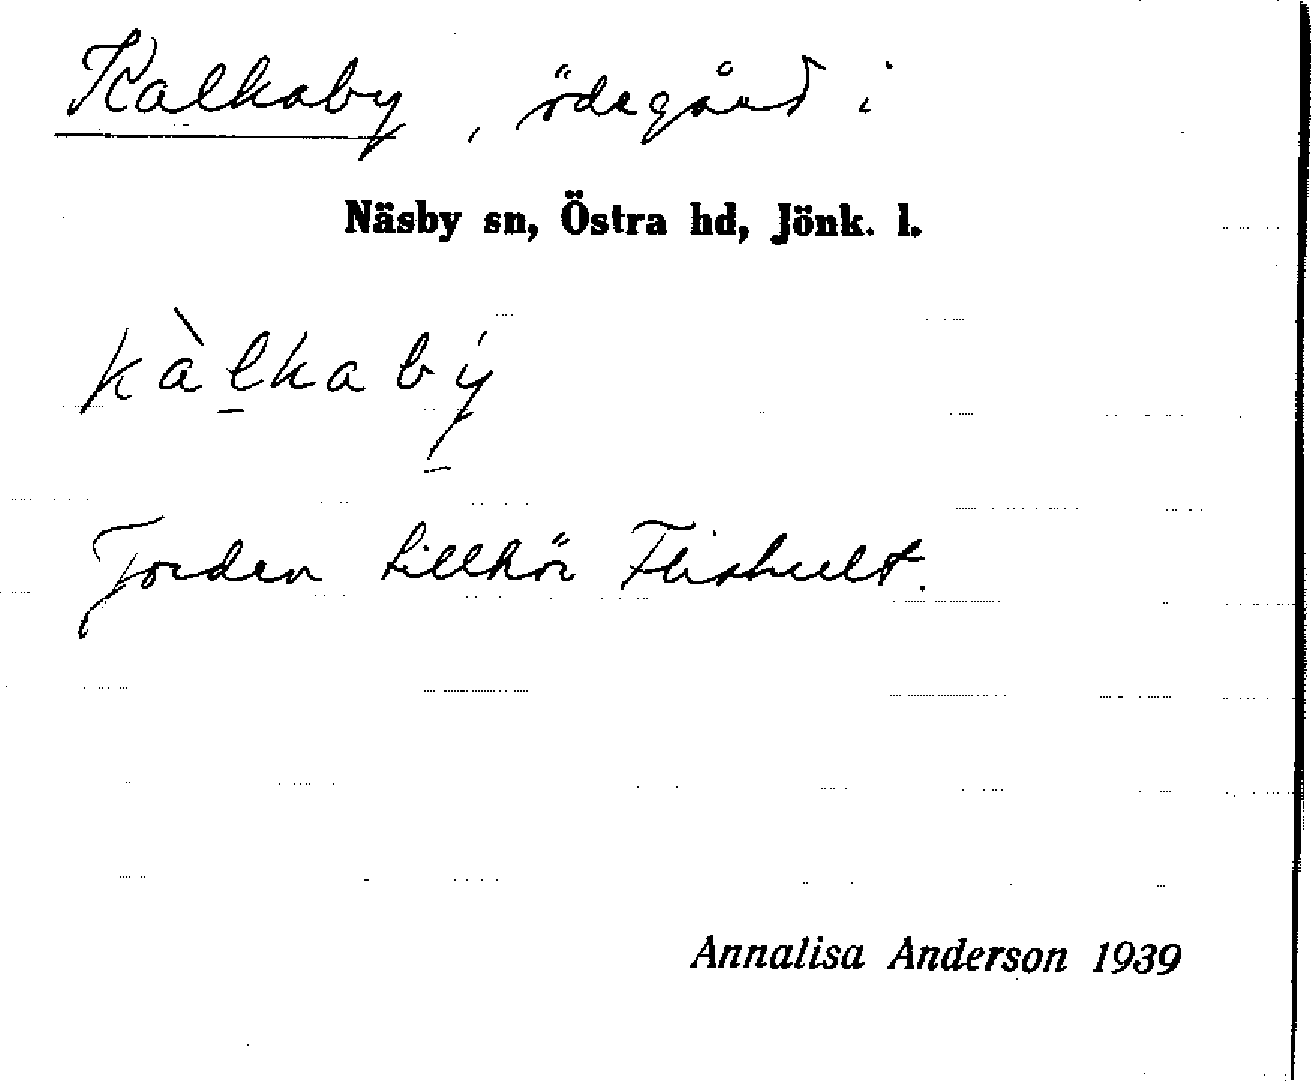 Kalkaby, ödegård i
Näsby sn, Östra hd, Jönk. l.
kàlkabý
Jorden tillhör Flishult.
Annalisa Anderson 1939